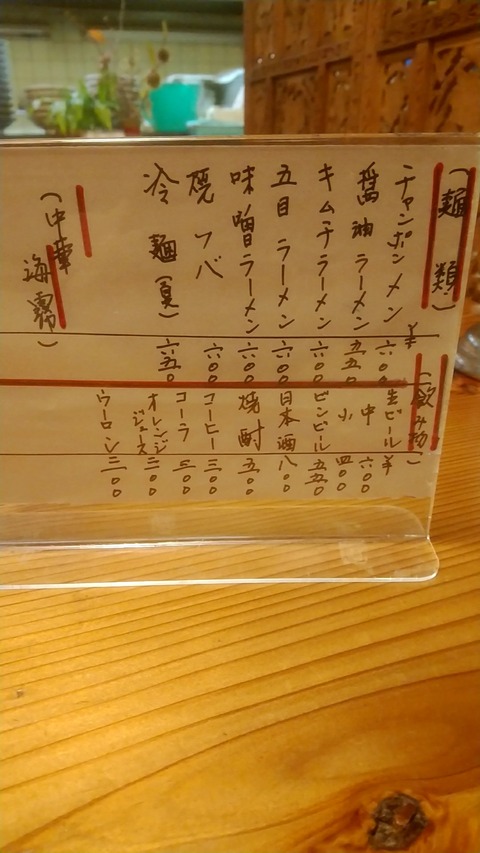 (麺類)
チャンポンメン ¥六〇〇
醤油ラーメン 五五〇
キムチラーメン 六〇〇
五目ラーメン 六〇〇
味噌ラーメン 六〇〇
焼ソバ 六〇〇
冷麺(夏) 六五〇
(飲み物)
生ビール ¥
中 六〇〇
小 四〇〇
ビンビール 五五〇
日本酒 八〇〇
焼酎 五〇〇
コーヒー 三〇〇
コーラ 三〇〇
オレンジジュース 三〇〇
ウーロン 三〇〇
(中華海霧)